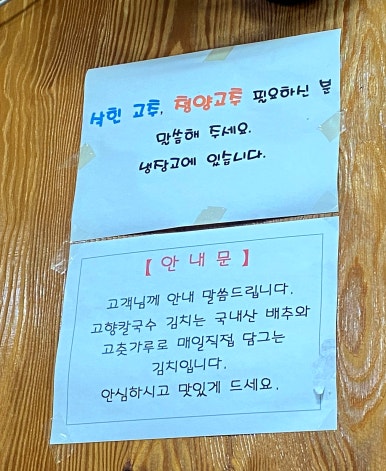 삭힌 고추, 청양고추 필요하신 분
말씀해 주세요.
냉장고에 있습니다.
【 안 내 문 】
고객님께 안내 말씀드립니다.
고향칼국수 김치는 국내산 배추와
고춧가루로 매일직접 담그는
김치입니다.
안심하시고 맛있게 드세요.